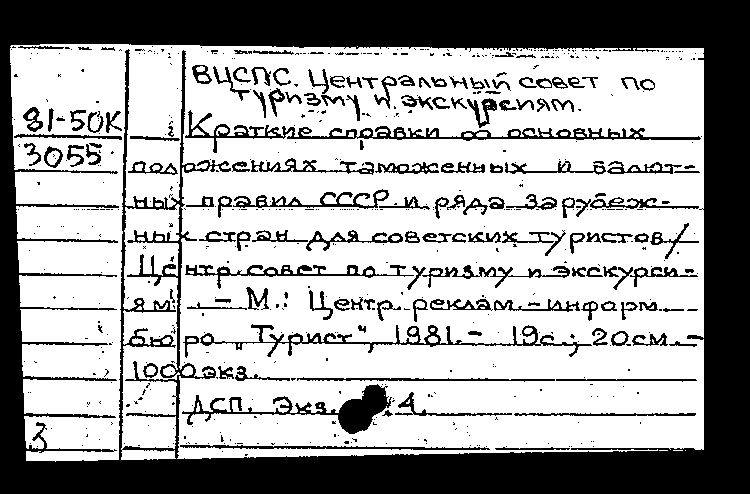 ВЦСПС. Центральный совет по
туризму и экскурсиям.
81-50К Краткие справки об основных
3055 положениях таможенных и валют-
ных правил СССР и ряда зарубеж-
ных стран для советских туристов/
Центр. совет по туризму и экскурси-
ям. - М.: Центр. реклам.-информ.
бюро „Турист", 1981.- 19с.; 20см.-
1000экз.
ДСП. Экз. 4.
3